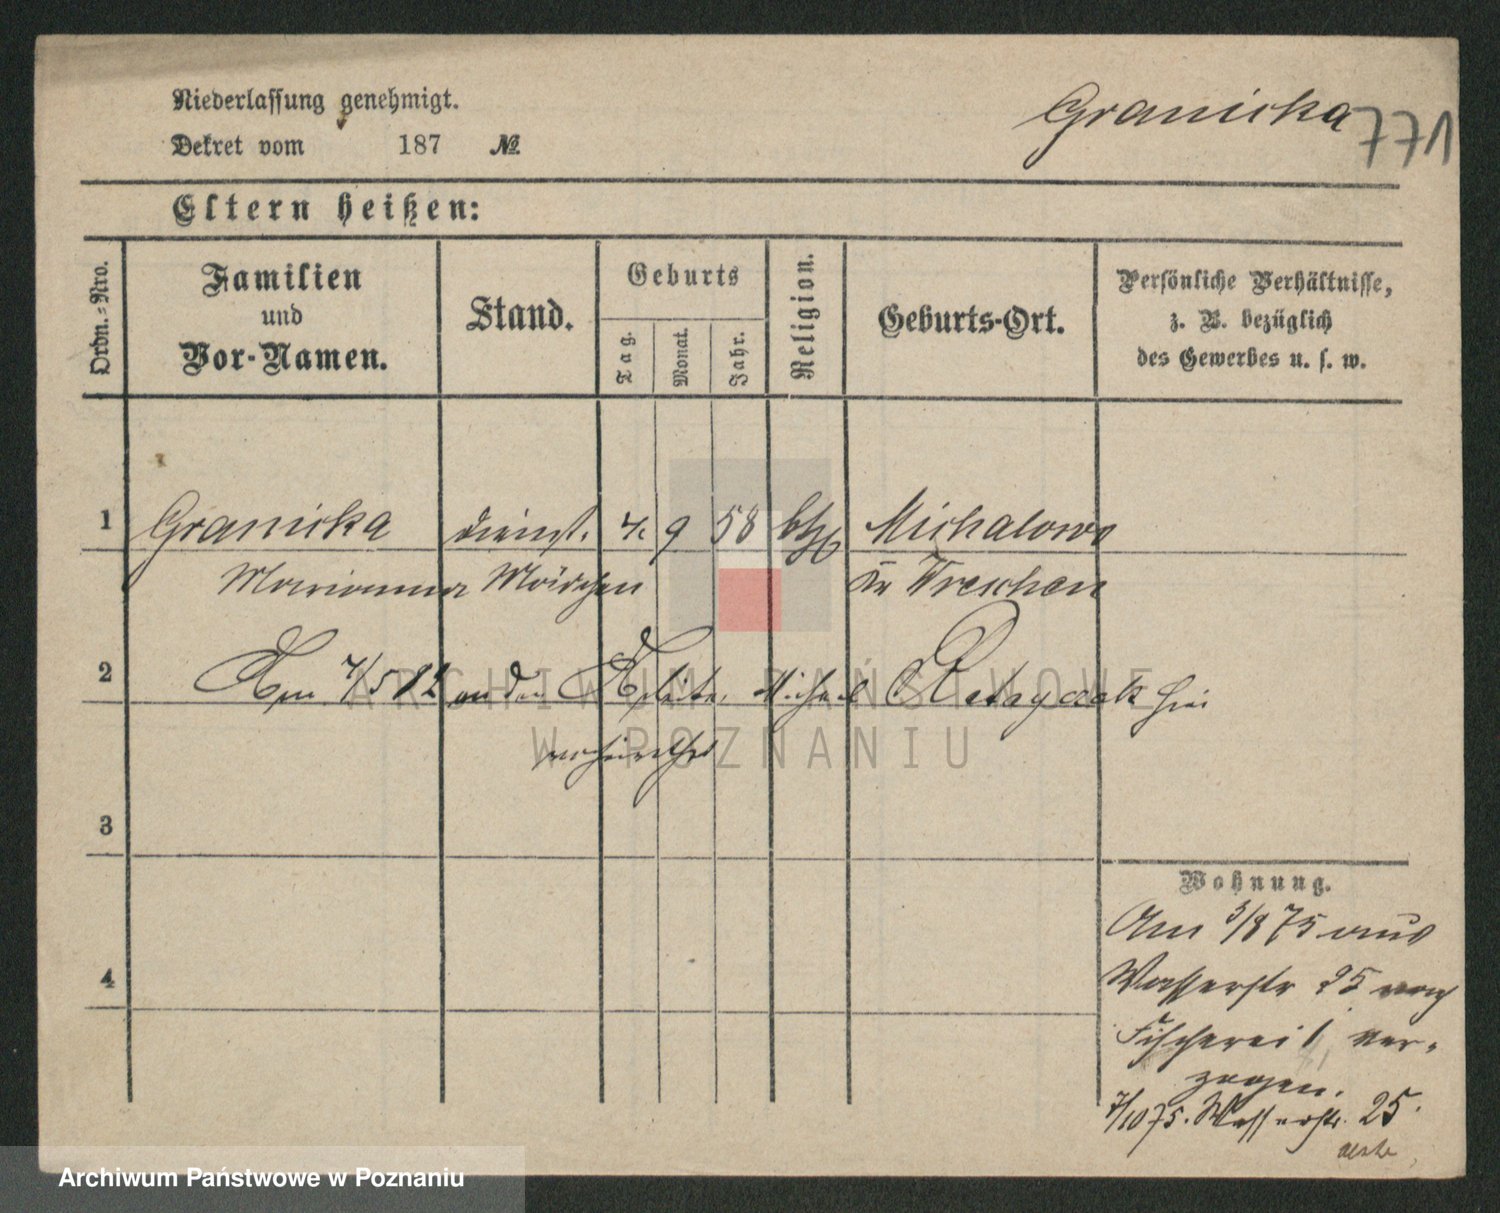 Niederlassung genehmigt.
Granicka
771
Dekret vom 187 №
Eltern heißen:
Ordn.-Nro.
Familien
und
Vor-Namen.
Stand.
Geburts
Tag.
Monat.
Jahr.
Religion.
Geburts-Ort.
Persönliche Verhältnisse,
z. B. bezüglich
des Gewerbes u. s. w.
1 Granicka Dienst. 4. 9 58 kth Michalowo
Marianna Mädchen Kr Wreschen
2 Am 4/5 82 an den Arbeiter Michael Ratayczak hier
verheirathet
3
4
Wohnung.
Am 3/8 75 aus
Wasserstr 25 nach
Fischerei 1 ver-
zogen.
7/10 75. Wasserstr. 25.
ARCHIWUM PAŃSTWOWE
W POZNANIU
Archiwum Państwowe w Poznaniu